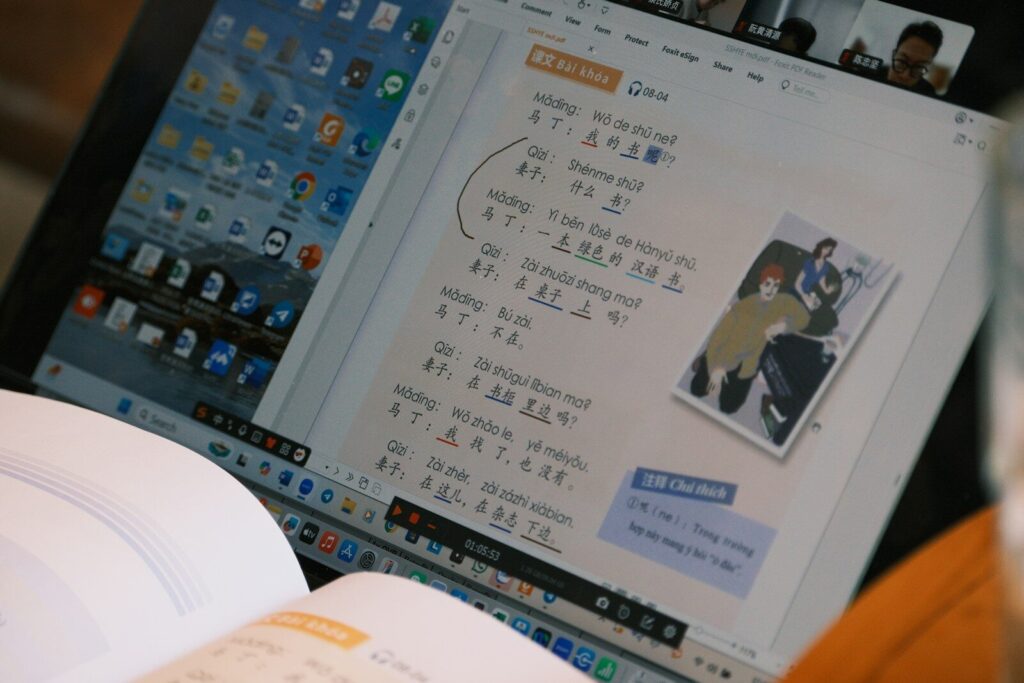 陈志坚
Comment View Form Protect Foxit eSign Share Help Tell me...
SSHYE mới.pdf - Foxit PDF Reader
SSHYE mới.pdf
课文 Bài khóa 08-04
Mǎdīng: Wǒ de shū ne?
马丁：我的书呢①?
Qīzi: Shénme shū?
妻子：什么书?
Mǎdīng: Yì běn lǜsè de Hànyǔ shū.
马丁：一本绿色的汉语书。
Qīzi: Zài zhuōzi shang ma?
妻子：在桌子上吗?
Mǎdīng: Bú zài.
马丁：不在。
Qīzi: Zài shūguì lǐbian ma?
妻子：在书柜里边吗?
Mǎdīng: Wǒ zhǎo le, yě méiyǒu.
马丁：我找了，也没有。
Qīzi: Zài zhèr, zài zázhì xiàbian.
妻子：在这儿，在杂志下边。
注释 Chú thích
①呢 (ne): Trong trường
hợp này mang ý hỏi "ở đâu".
Search
01:05:53
Bài khóa 08-04